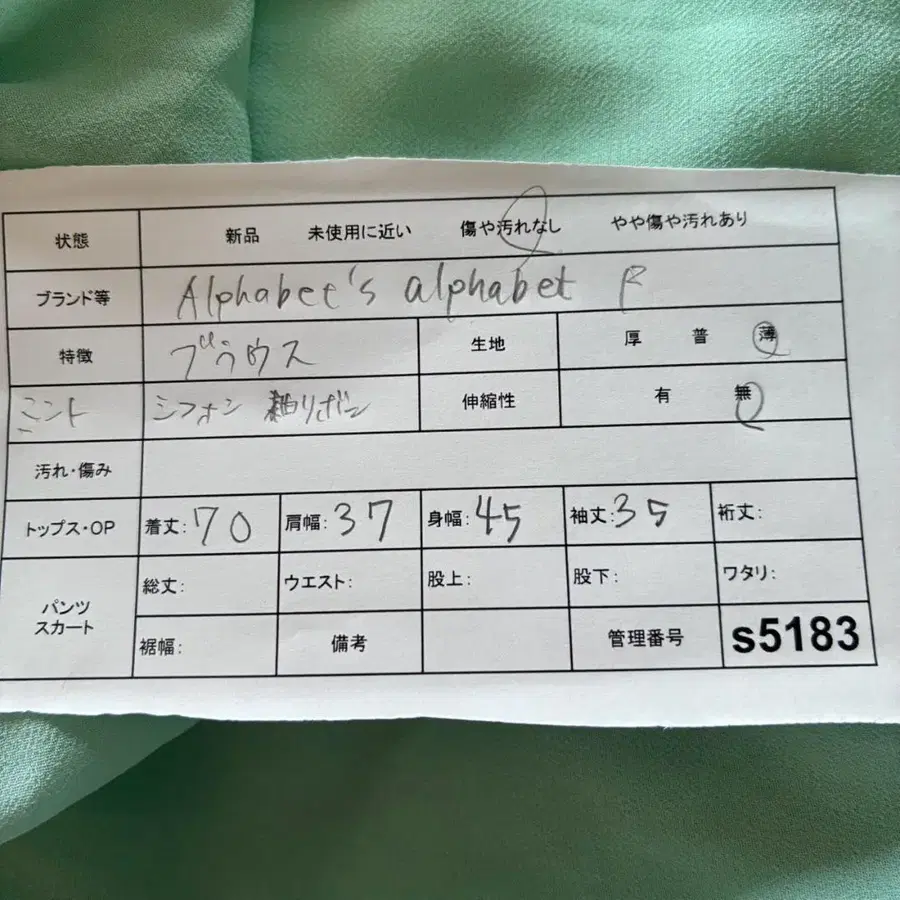 状態 新品 未使用に近い 傷や汚れなし やや傷や汚れあり
ブランド等 Alphabet's alphabet F
特徴 ブラウス 生地 厚 普 薄
ミント シフォン 紐リボン 伸縮性 有 無
汚れ・傷み
トップス・OP 着丈:70 肩幅:37 身幅:45 袖丈:35 裄丈:
パンツ スカート 総丈: ウエスト: 股上: 股下: ワタリ:
裾幅: 備考 管理番号 s5183